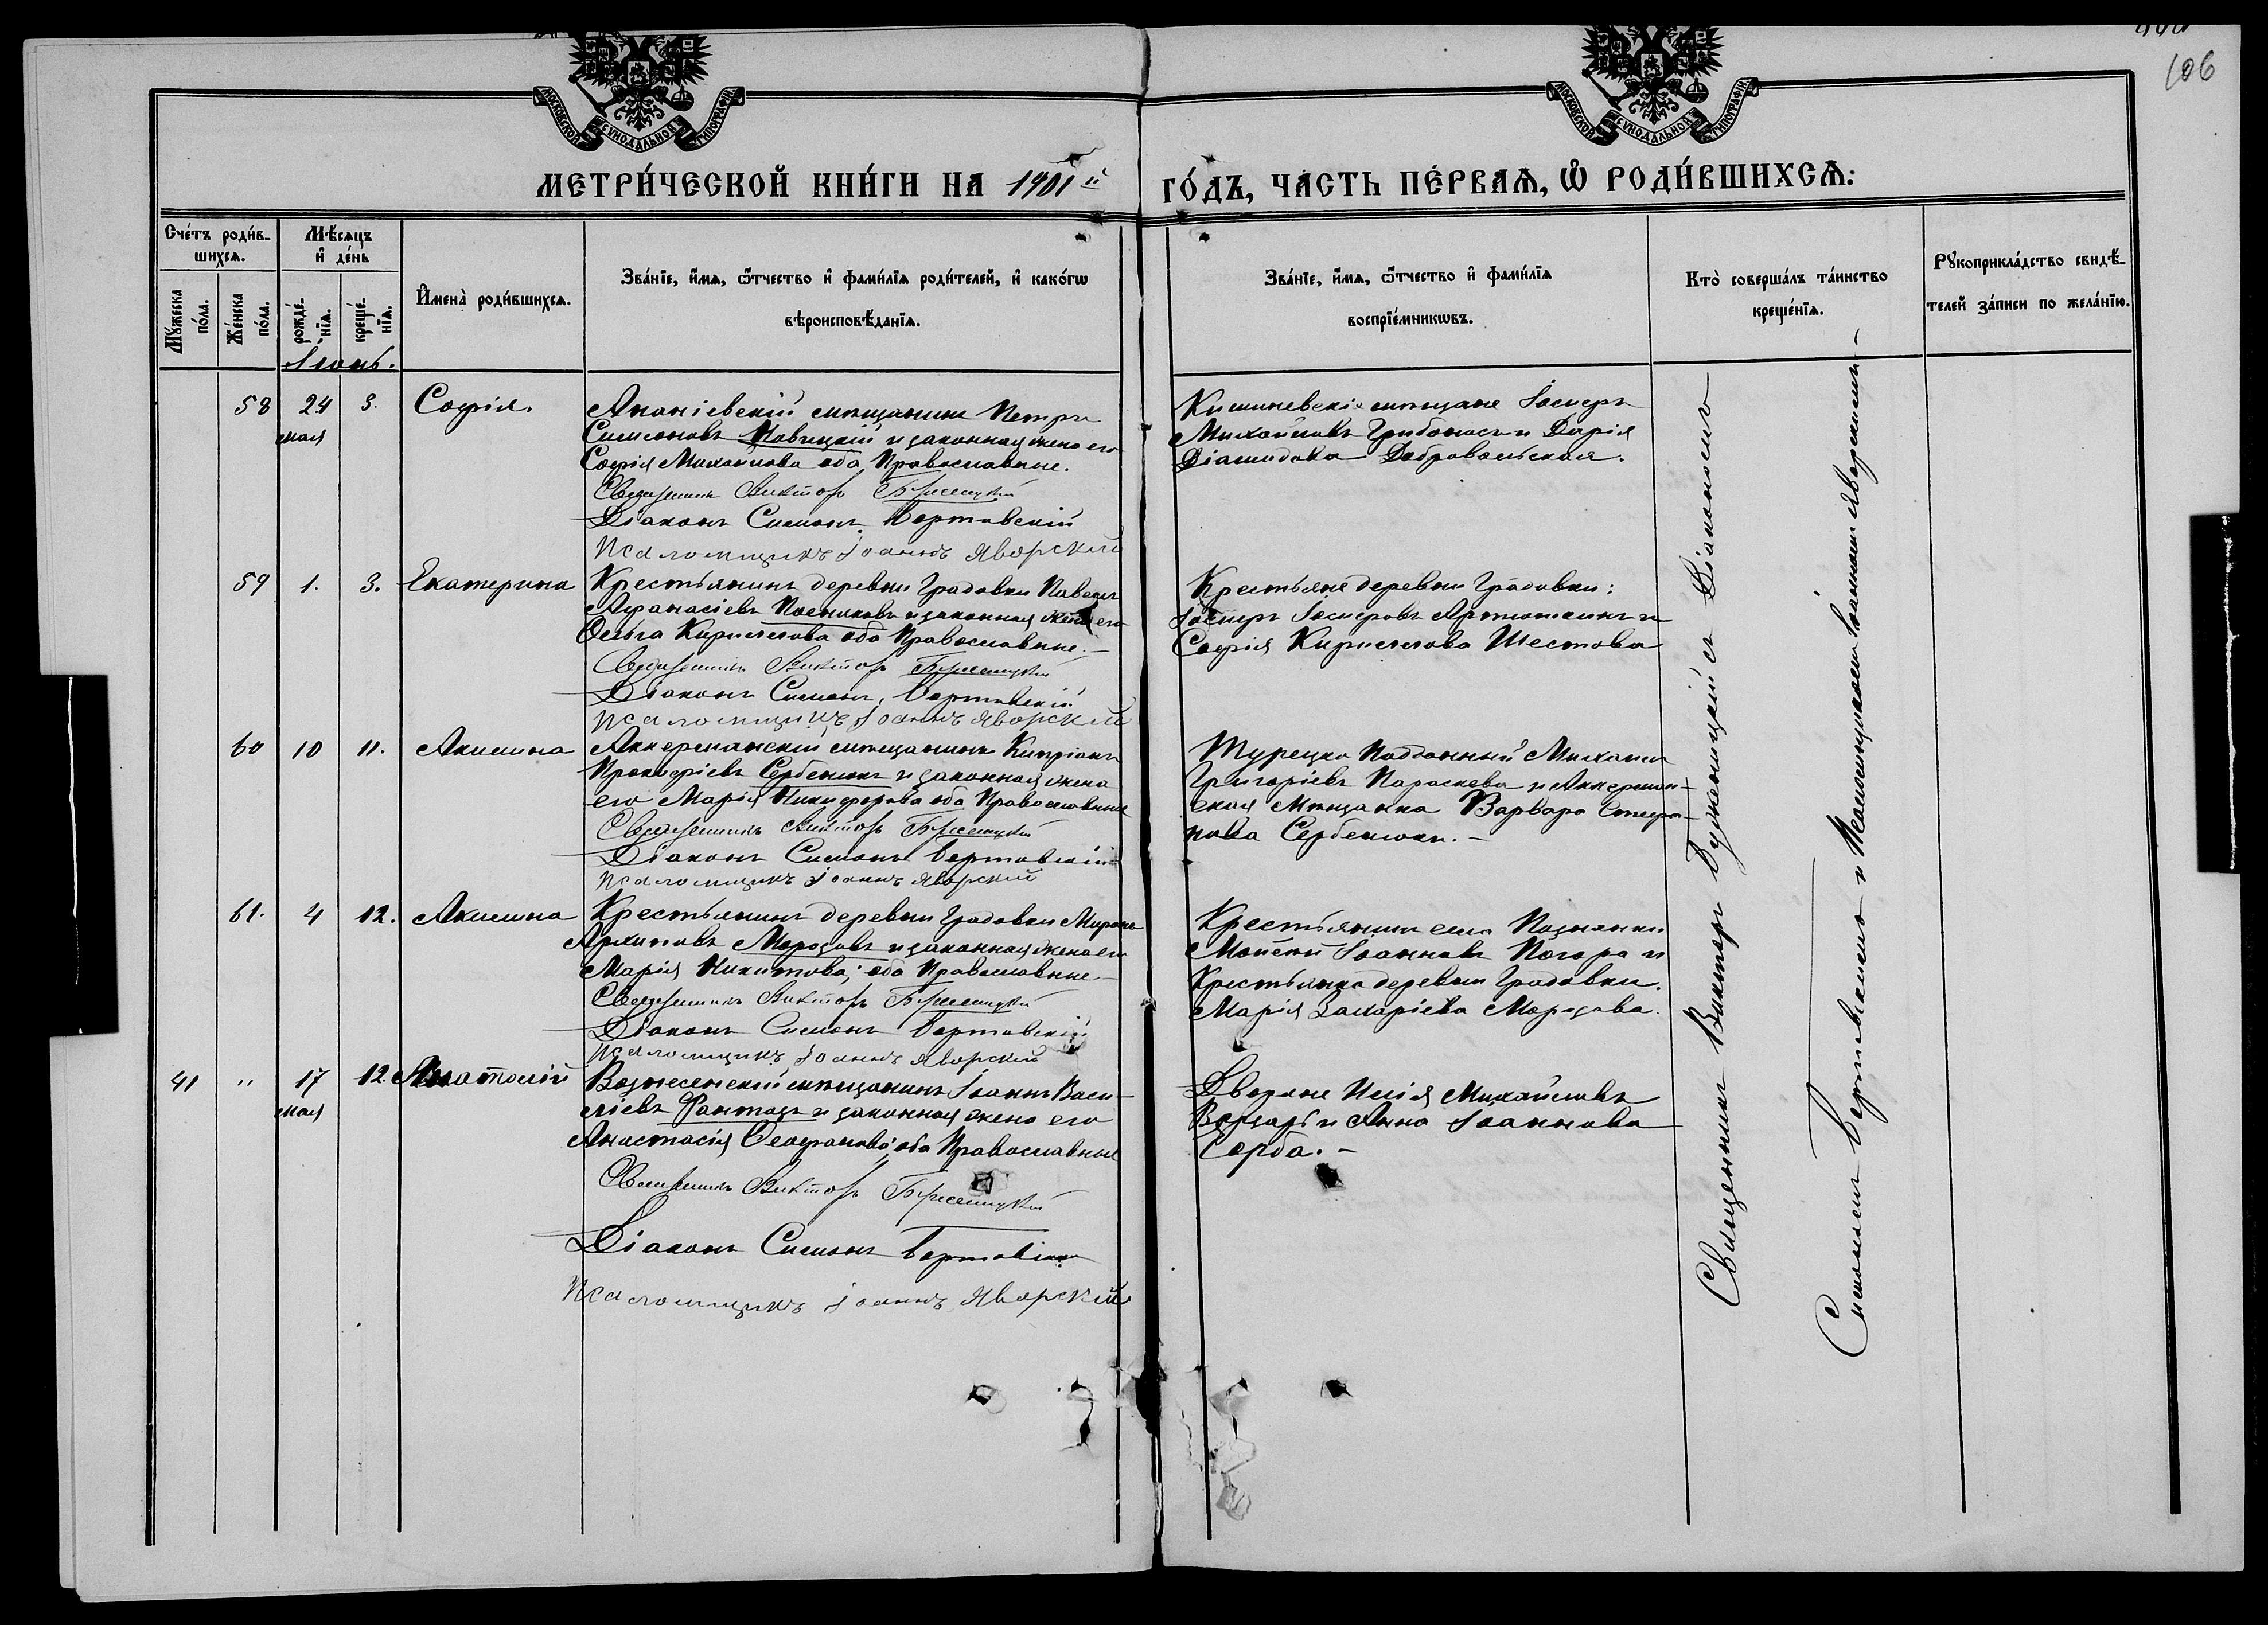 106
МОСКОВСКОЙ СѴНОДАЛЬНОЙ ТИПОГРАФІИ
МОСКОВСКОЙ СѴНОДАЛЬНОЙ ТИПОГРАФІИ
МЕТРИ́ЧЕСКОЙ КНИ́ГИ НА 1901й ГО́ДЪ, ЧА́СТЬ ПЕ́РВАѦ, Ѡ҆ РОДИ́ВШИХСѦ:
Сче́тъ роди́в-
шихсѧ.
Мꙋ́жеска по́ла.
Же́нска по́ла.
Мѣ́сѧцъ
и҆ де́нь
рожде́-нїѧ.
креще́-нїѧ.
И҆мена̀ роди́вшихсѧ.
Зва́нїе, и҆́мѧ, ѻ҆́тчество и҆ фами́лїѧ роди́телей, и҆ како́гѡ
вѣроисповѣ́данїѧ.
Зва́нїе, и҆́мѧ, ѻ҆́тчество и҆ фами́лїѧ
воспрїе́мникѡвъ.
Кто̀ соверша́лъ та́инство
креще́нїѧ.
Рꙋкоприкла́дство свидѣ́-
телей за́писи по жела́нїю.
Іюнь.
58 24 мая 3. Софія.
Ананіевскій мѣщанинъ Петръ
Симеоновъ Новицкій и законная жена его
Софія Михайлова оба Православные.
Священникъ Викторъ
Діаконъ Симеонъ Вертовскій
Псаломщикъ Іоаннъ Яворскій
Кишиневскіе мѣщане Іосифъ
Михайловъ Грибоносъ и Дарія
Добровольская.
59 1. 3. Екатерина
Крестьянинъ деревни Градовки Павелъ
Аѳанасіевъ и законная жена его
Ольга Кириллова оба Православные.-
Священникъ Викторъ
Діаконъ Симеонъ Вертовскій
Псаломщикъ Іоаннъ Яворскій
Крестьяне деревни Градовки:
Іосифъ Іосифовъ Артюшкинъ и
Софія Кириллова Шестова
60 10 11. Акилина
Аккерманскій мѣщанинъ Кипріанъ
Прокофіевъ Сербенюкъ и законная жена
его Марія Никифорова оба Православные
Священникъ Викторъ
Діаконъ Симеонъ Вертовскій
Псаломщикъ Іоаннъ Яворскій
Турецко Подданный Михаилъ
Григоріевъ Параскева и Аккерман-
ская Мѣщанка Варвара Стефа-
нова Сербенюкъ.-
61. 4 12. Акилина
Крестьянинъ деревни Градовки Миронъ
Архиповъ Морозовъ и законная жена его
Марія Никитова; оба Православные.-
Священникъ Викторъ
Діаконъ Симеонъ Вертовскій
Псаломщикъ Іоаннъ Яворскій
Крестьянинъ села Познанки
Моисей Іоанновъ Погора и
Крестьянка деревни Градовки.
Марія Захаріева Морозова.
41 " 17 мая 12. Анатолій
Вознесенскій мѣщанинъ Іоаннъ Васи-
ліевъ Фантазъ и законная жена его
Анастасія Ѳеофанова; оба Православные
Священникъ Викторъ
Діаконъ Симеонъ Вертовскій
Псаломщикъ Іоаннъ Яворскій
Дворяне Илія Михайловъ
и Анна Іоаннова
Серба.-
Священникъ Викторъ съ Діакономъ
Симеономъ Вертовскимъ и Псаломщикомъ Іоанномъ Яворскимъ-